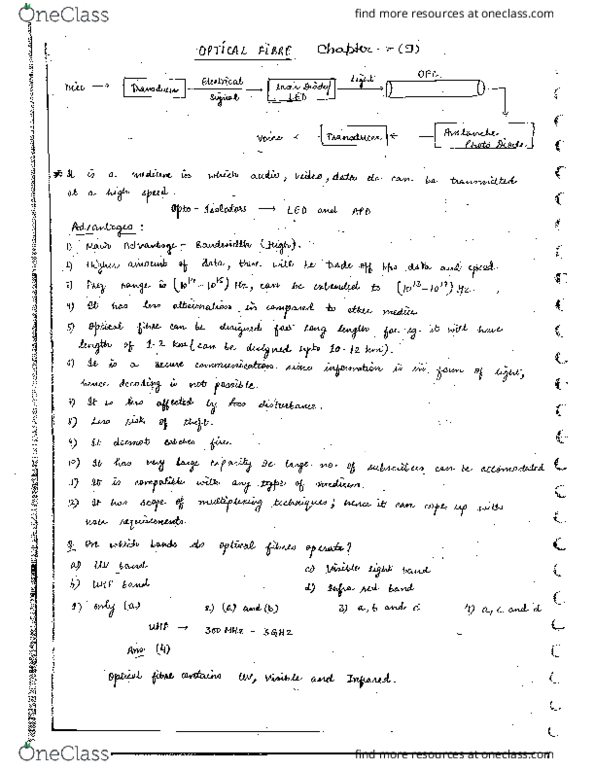 OneClass
find more resources at oneclass.com
OPTICAL FIBRE Chapter - (9)
Transducer
Electrical Signal
LED
Light
OFC
Voice
Transducer
Avalanche Photo Diode
* It is a medium in which audio, video, data etc can be transmitted
at a high speed.
Opto-Isolators → LED and APD
Advantages :
1) Main Advantage - Bandwidth (High).
2) Higher amounts of data, there will be trade off data and speed.
3) Freq range is Hz, can be extended to Hz.
4) It has less attenuation in compared to other media
5) Optical fibre can be designed for long length for eg. it will have
length of 1-2 km (can be designed upto 10-12 km).
6) It is a secure communication since information is in form of light,
hence decoding is not possible.
7) It is less affected by disturbance.
8) Less risk of theft.
9) It doesnot catches fire.
10) It has very large capacity large no. of subscribers can be accomodated
11) It is compatible with any type of medium.
12) It has scope of multiplexing techniques; hence it can copes up with
requirements.
Q. On which bands do optical fibres operate?
a) UV band c) Visible light band
b) UHF band d) Infra red band
1) only (a) 2) (a) and (b) 3) a, b and c 4) a, c and d
UHF → 300 MHz - 3GHz
Ans (4)
Optical fibre contains UV, Visible and Infrared.
OneClass
find more resources at oneclass.com